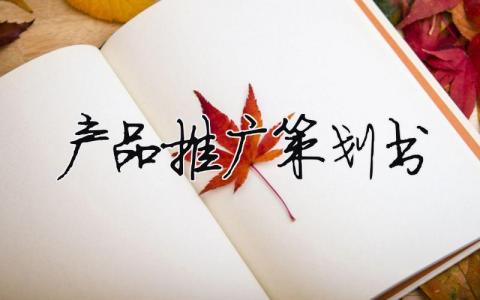 产品推广策划书